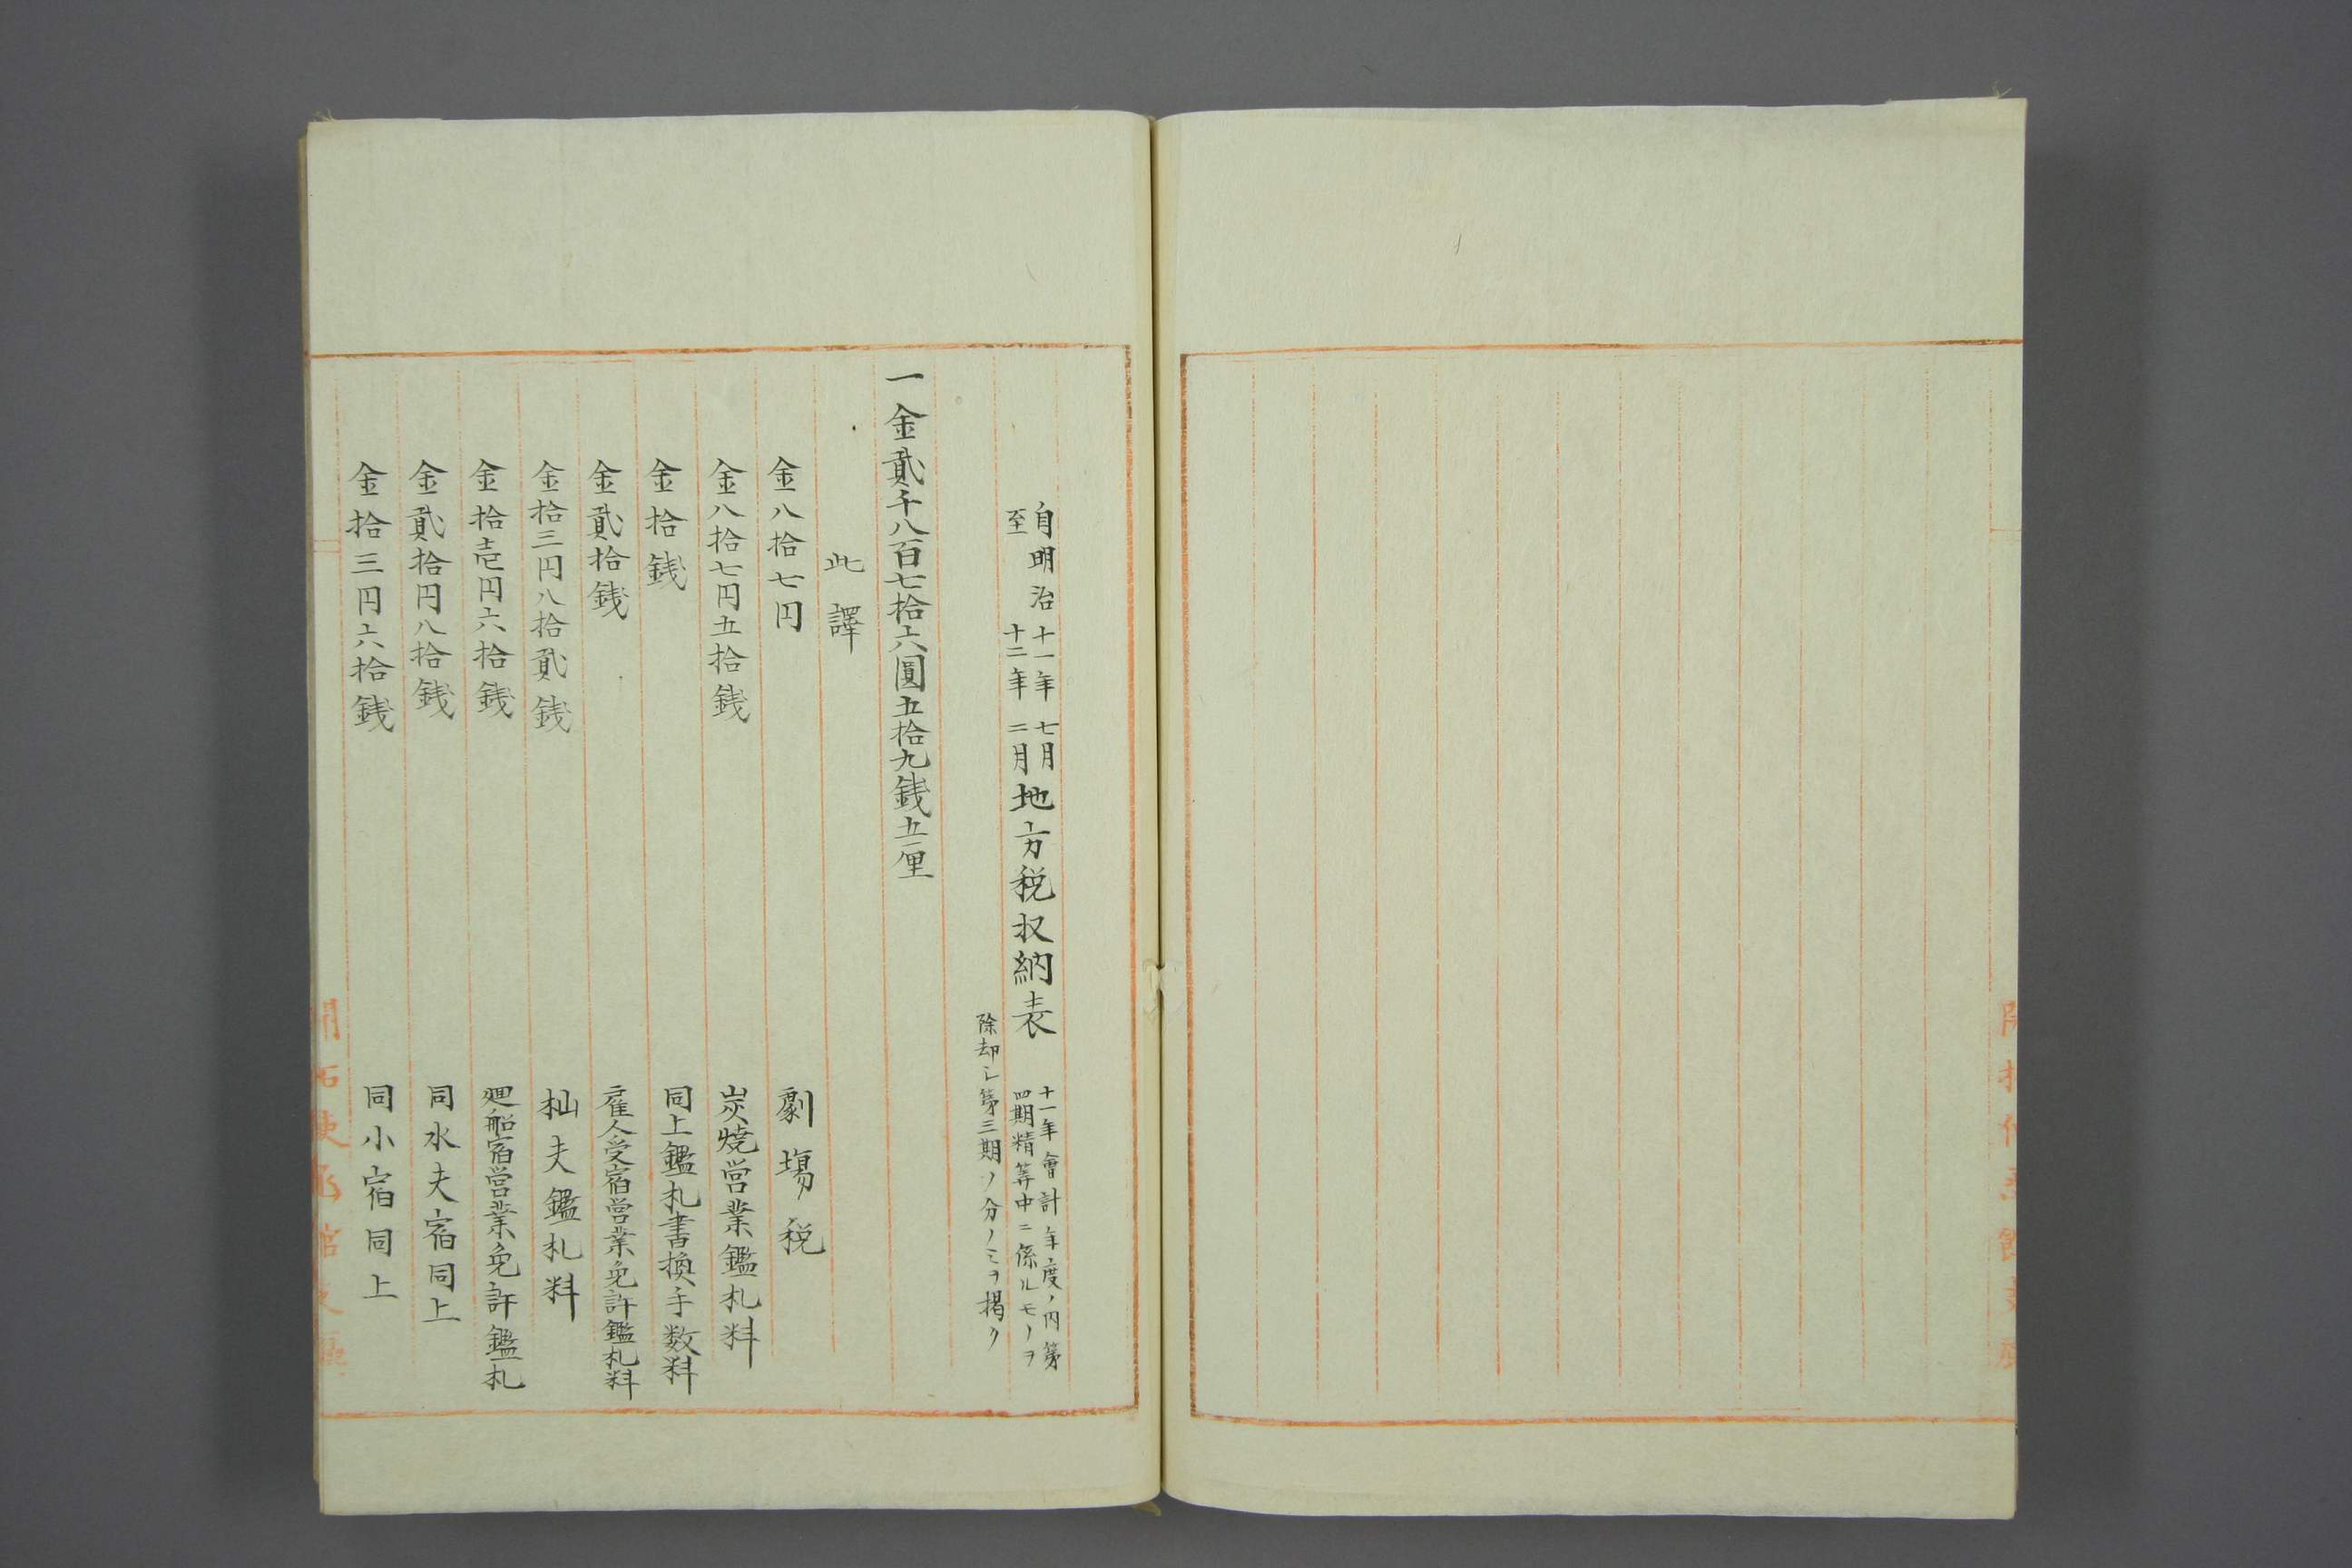 自明治十一年七月
至　　十二年二月地方税収納表
十一年會計年度ノ内第
四期精筭中ニ係ルモノヲ
除却シ第三期ノ分ノミヲ掲ク
一金貮千八百七拾六圓五拾九銭五厘
此譯
金八拾七円　劇塲税
金八拾七円五拾銭　炭焼営業鑑札料
金拾銭　同上鑑札書換手数料
金貮拾銭　雇人受宿営業免許鑑札料
金拾三円八拾貮銭　杣夫鑑札料
金拾壱円六拾銭　廻船宿営業免許鑑札
金貮拾円八拾銭　同水夫宿同上
金拾三円六拾銭　同小宿同上
開拓使函館支廳